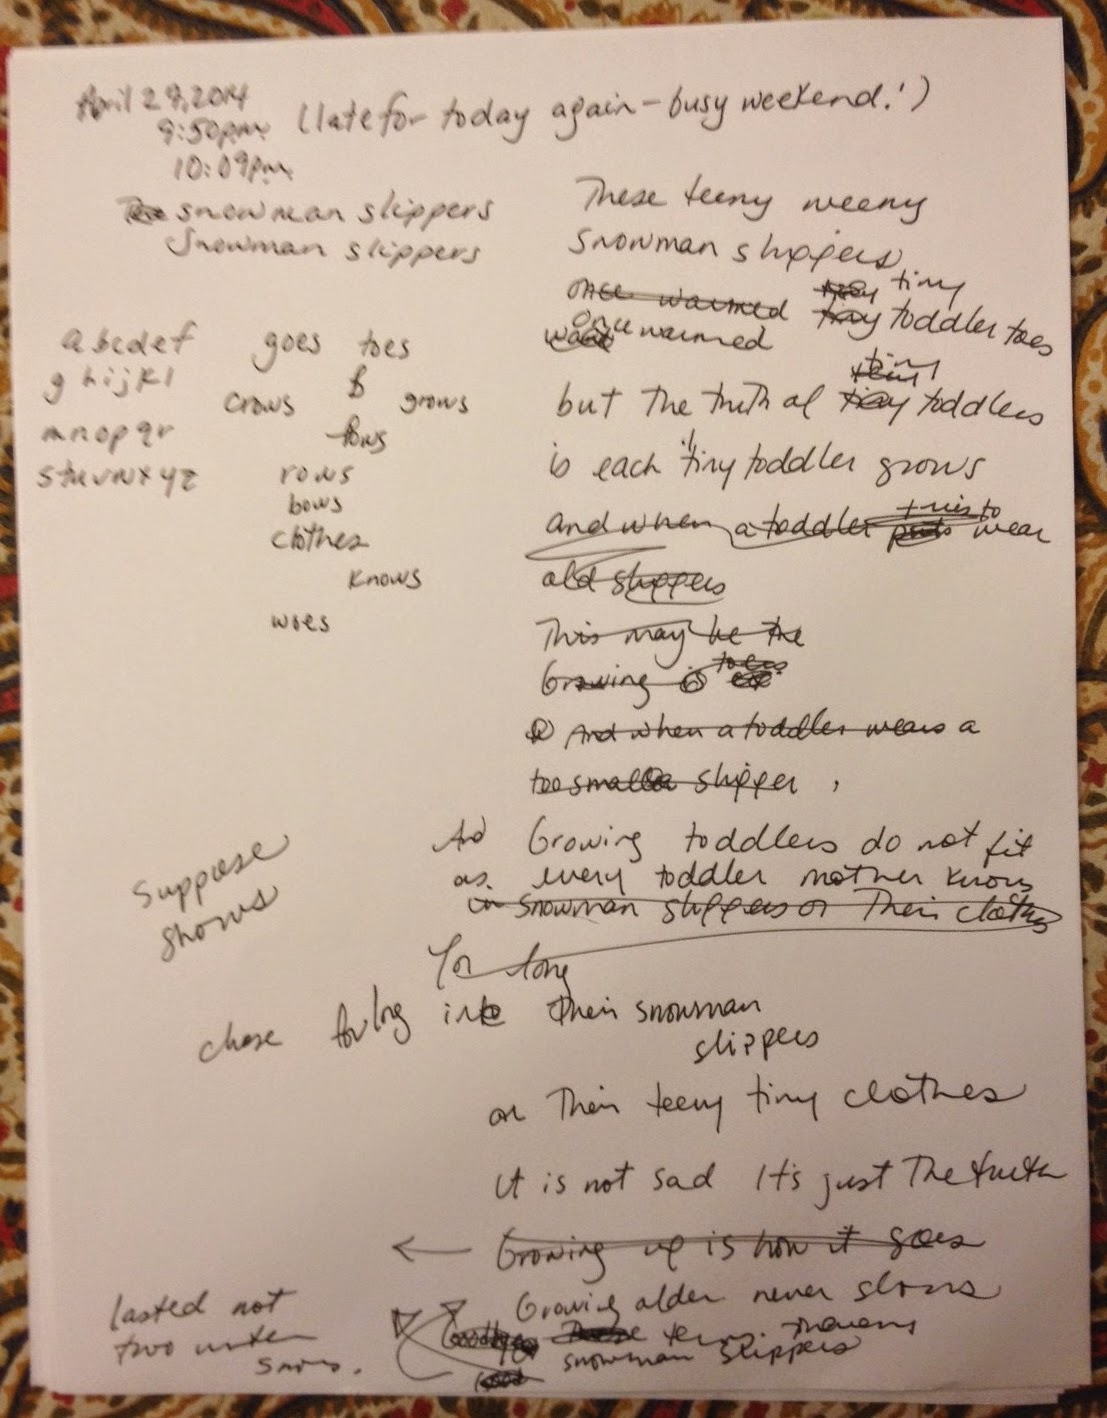 April 29, 2014
9:50pm (late for today again - busy weekend!)
10:09pm
snowman slippers
Snowman slippers
abcdef
ghijkl
mnopqr
stuvwxyz
goes toes
crows grows
rows
bows
clothes
knows
woes
Suppose
shows
chose
These teeny weeny
snowman slippers
once warmed tiny
once warmed tiny toddler toes
tiny
but the truth of tiny toddlers
is each tiny toddler grows
and when a toddler tries to wear
old slippers
This may be the
Growing is toes
And when a toddler wears a
too small slipper,
And Growing toddlers do not fit
as every toddler mother knows
in snowman slippers or their clothes
For long
for long into their snowman
slippers
or their teeny tiny clothes
It is not sad It's just the truth
← Growing up is how it goes
Growing older never slows
snowman slippers
lasted not
two
snows.